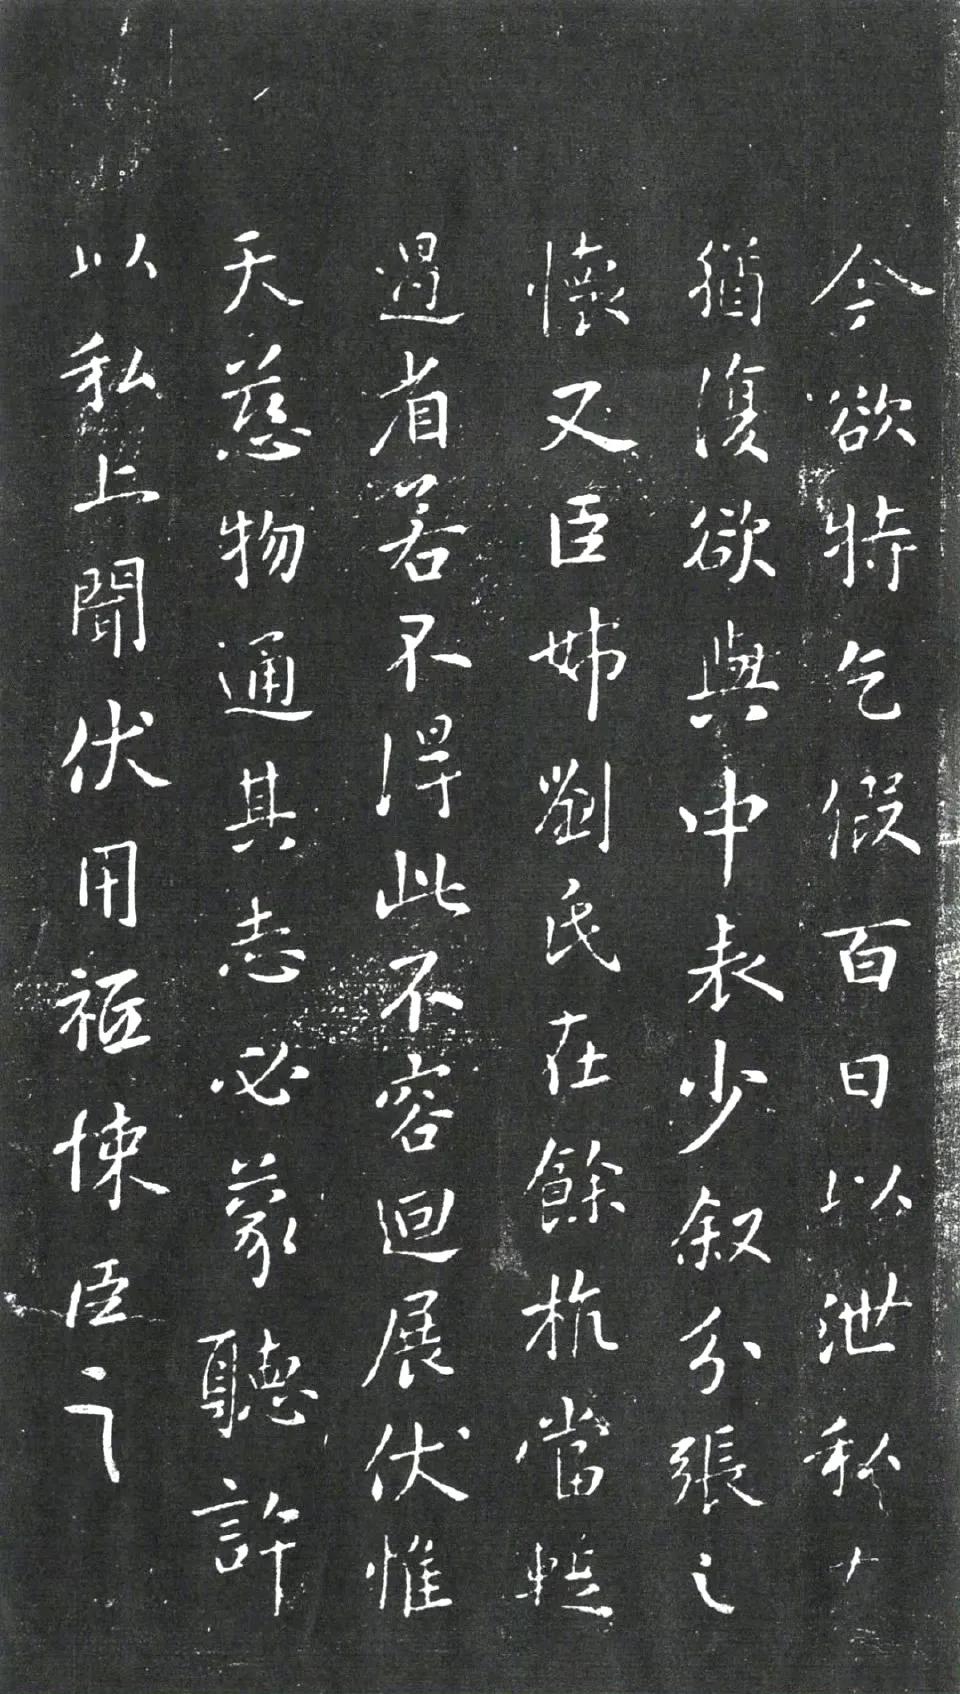 今欲特乞假百日以泄私
猶復欲與中表少叙分張之
懷又臣姊劉氏在餘杭當暫
過省若不得此不容迴展伏惟
天慈物通其志必蒙聽許
以私上聞伏用祗悚臣之